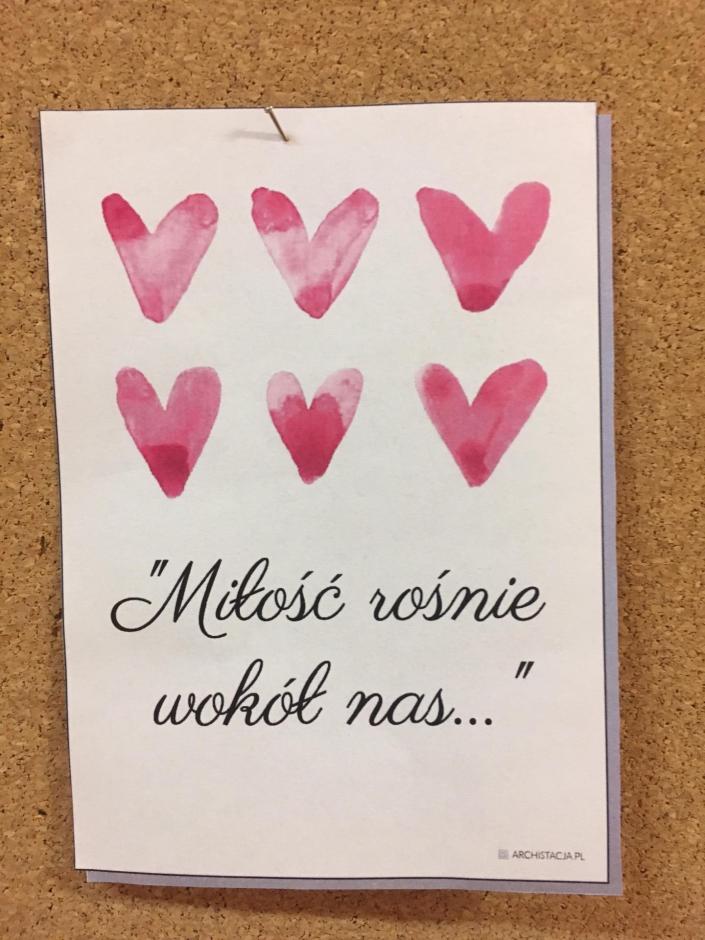 "Miłość rośnie
wokół nas..."
ARCHISTACJA.PL